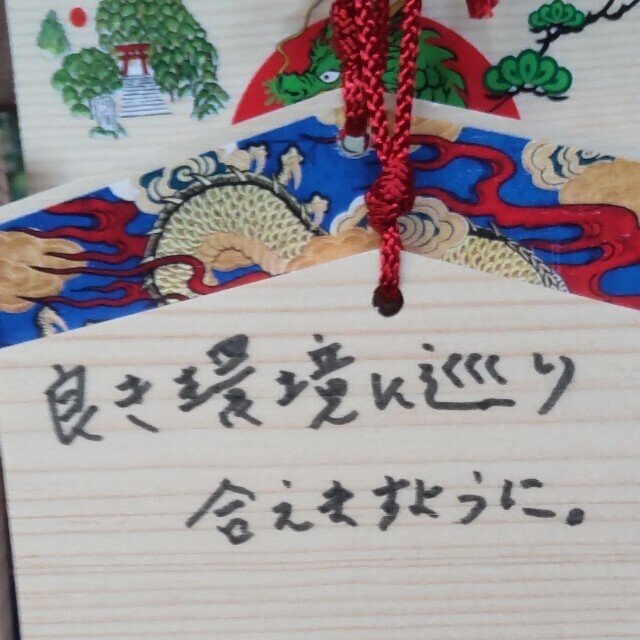 良き環境に巡り
合えますように。